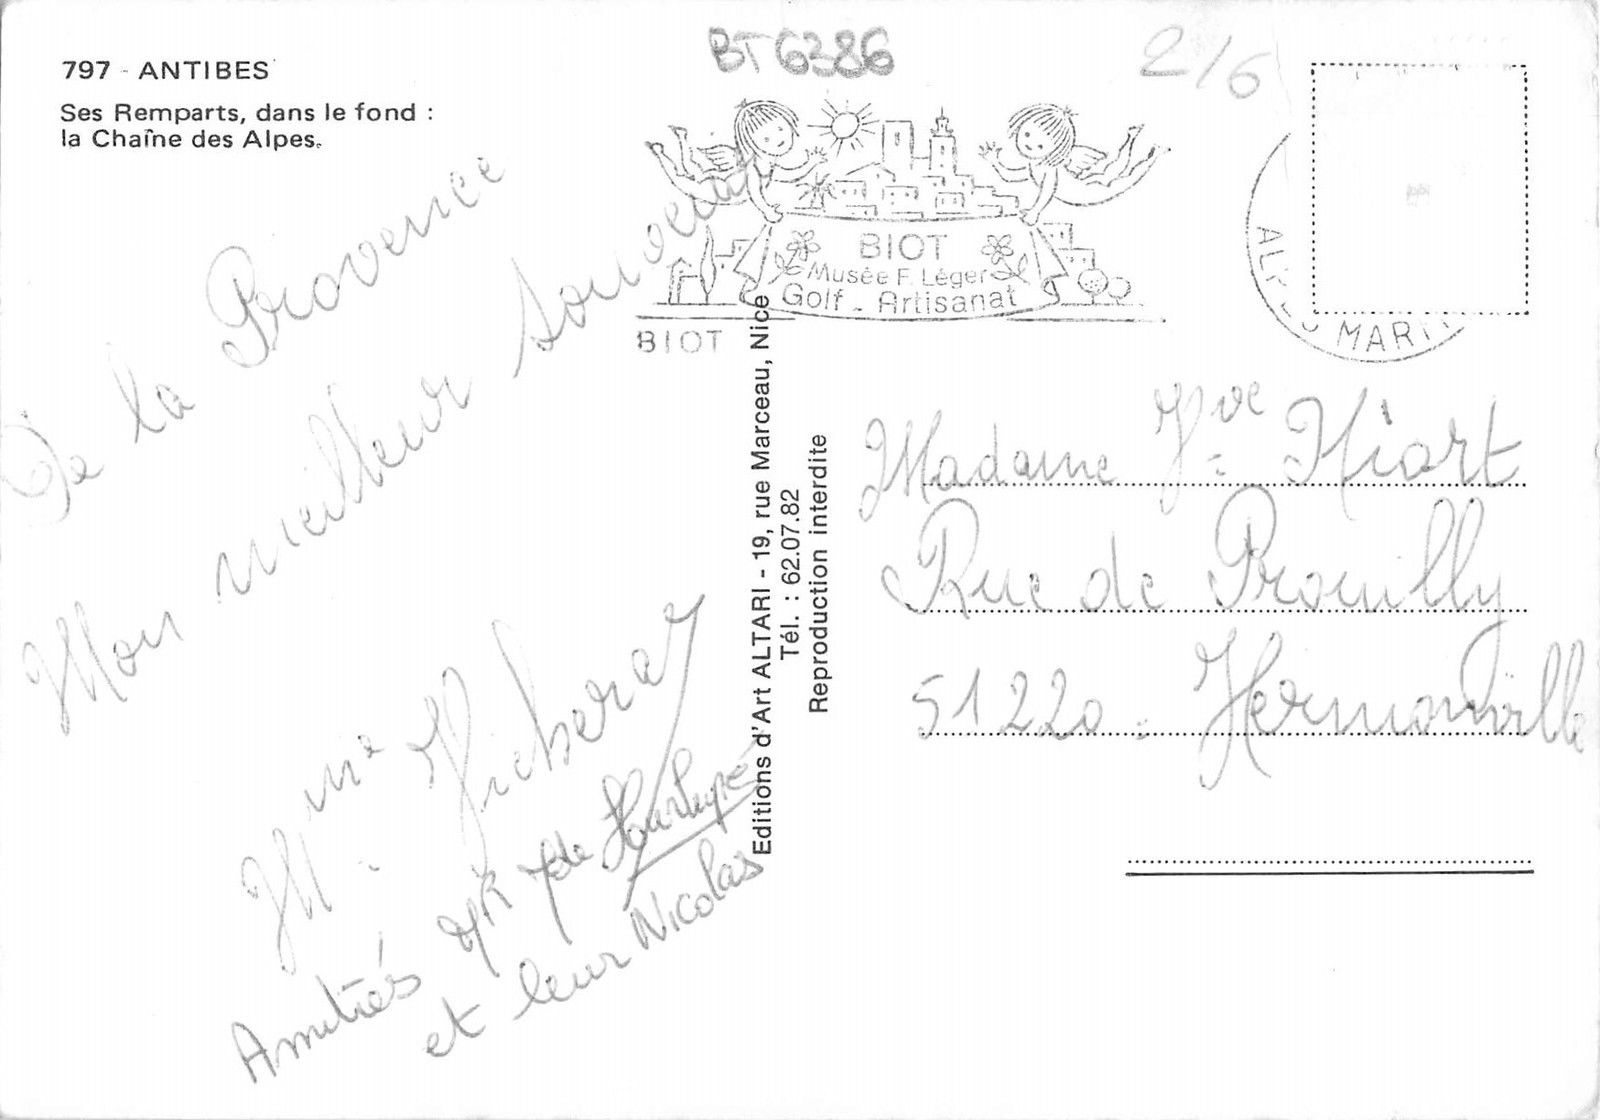 BT 6386
2/6
797 - ANTIBES
Ses Remparts, dans le fond :
la Chaîne des Alpes.
BIOT
Musée F. Léger
Golf - Artisanat
BIOT
ALPES MARIT
De la Provence
Mon meilleur souvenir
Mme
Amitiés Mr Mde
et leur Nicolas
Editions d'Art ALTARI - 19, rue Marceau, Nice
Tél. : 62.07.82
Reproduction interdite
Madame Vve Hiart
Rue de Prouilly
51220. Hermonville